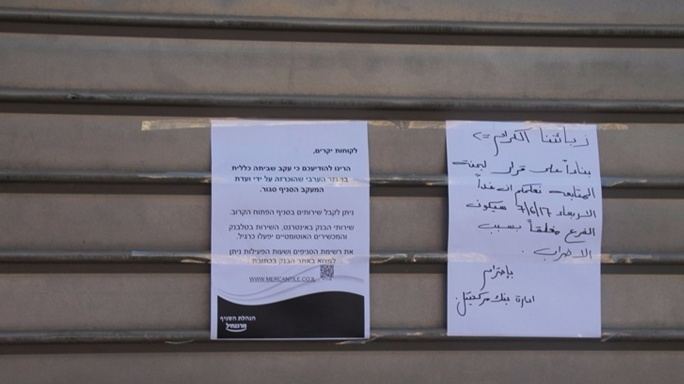 לקוחות יקרים,
הרינו להודיעכם כי עקב שביתה כללית
במגזר הערבי שהוכרזה על ידי ועדת
המעקב הסניף סגור.
ניתן לקבל שירותים בסניף הפתוח הקרוב.
שירותי הבנק באינטרנט, השירות בטלבנק
והמכשירים האוטומטיים יפעלו כרגיל.
את רשימת הסניפים ושעות הפעילות ניתן
למצוא באתר הבנק בכתובת
WWW.MERCANTILE.CO.IL
הנהלת הסניף
מרכנתיל
زبائننا الكرام
بناءاً على قرار لجنة
المتابعة نعلمكم ان غداً
الاربعاء 7/6/17 سيكون
الفرع مغلقاً بسبب
الاضراب.
بإحترام
ادارة بنك مركنتيل.